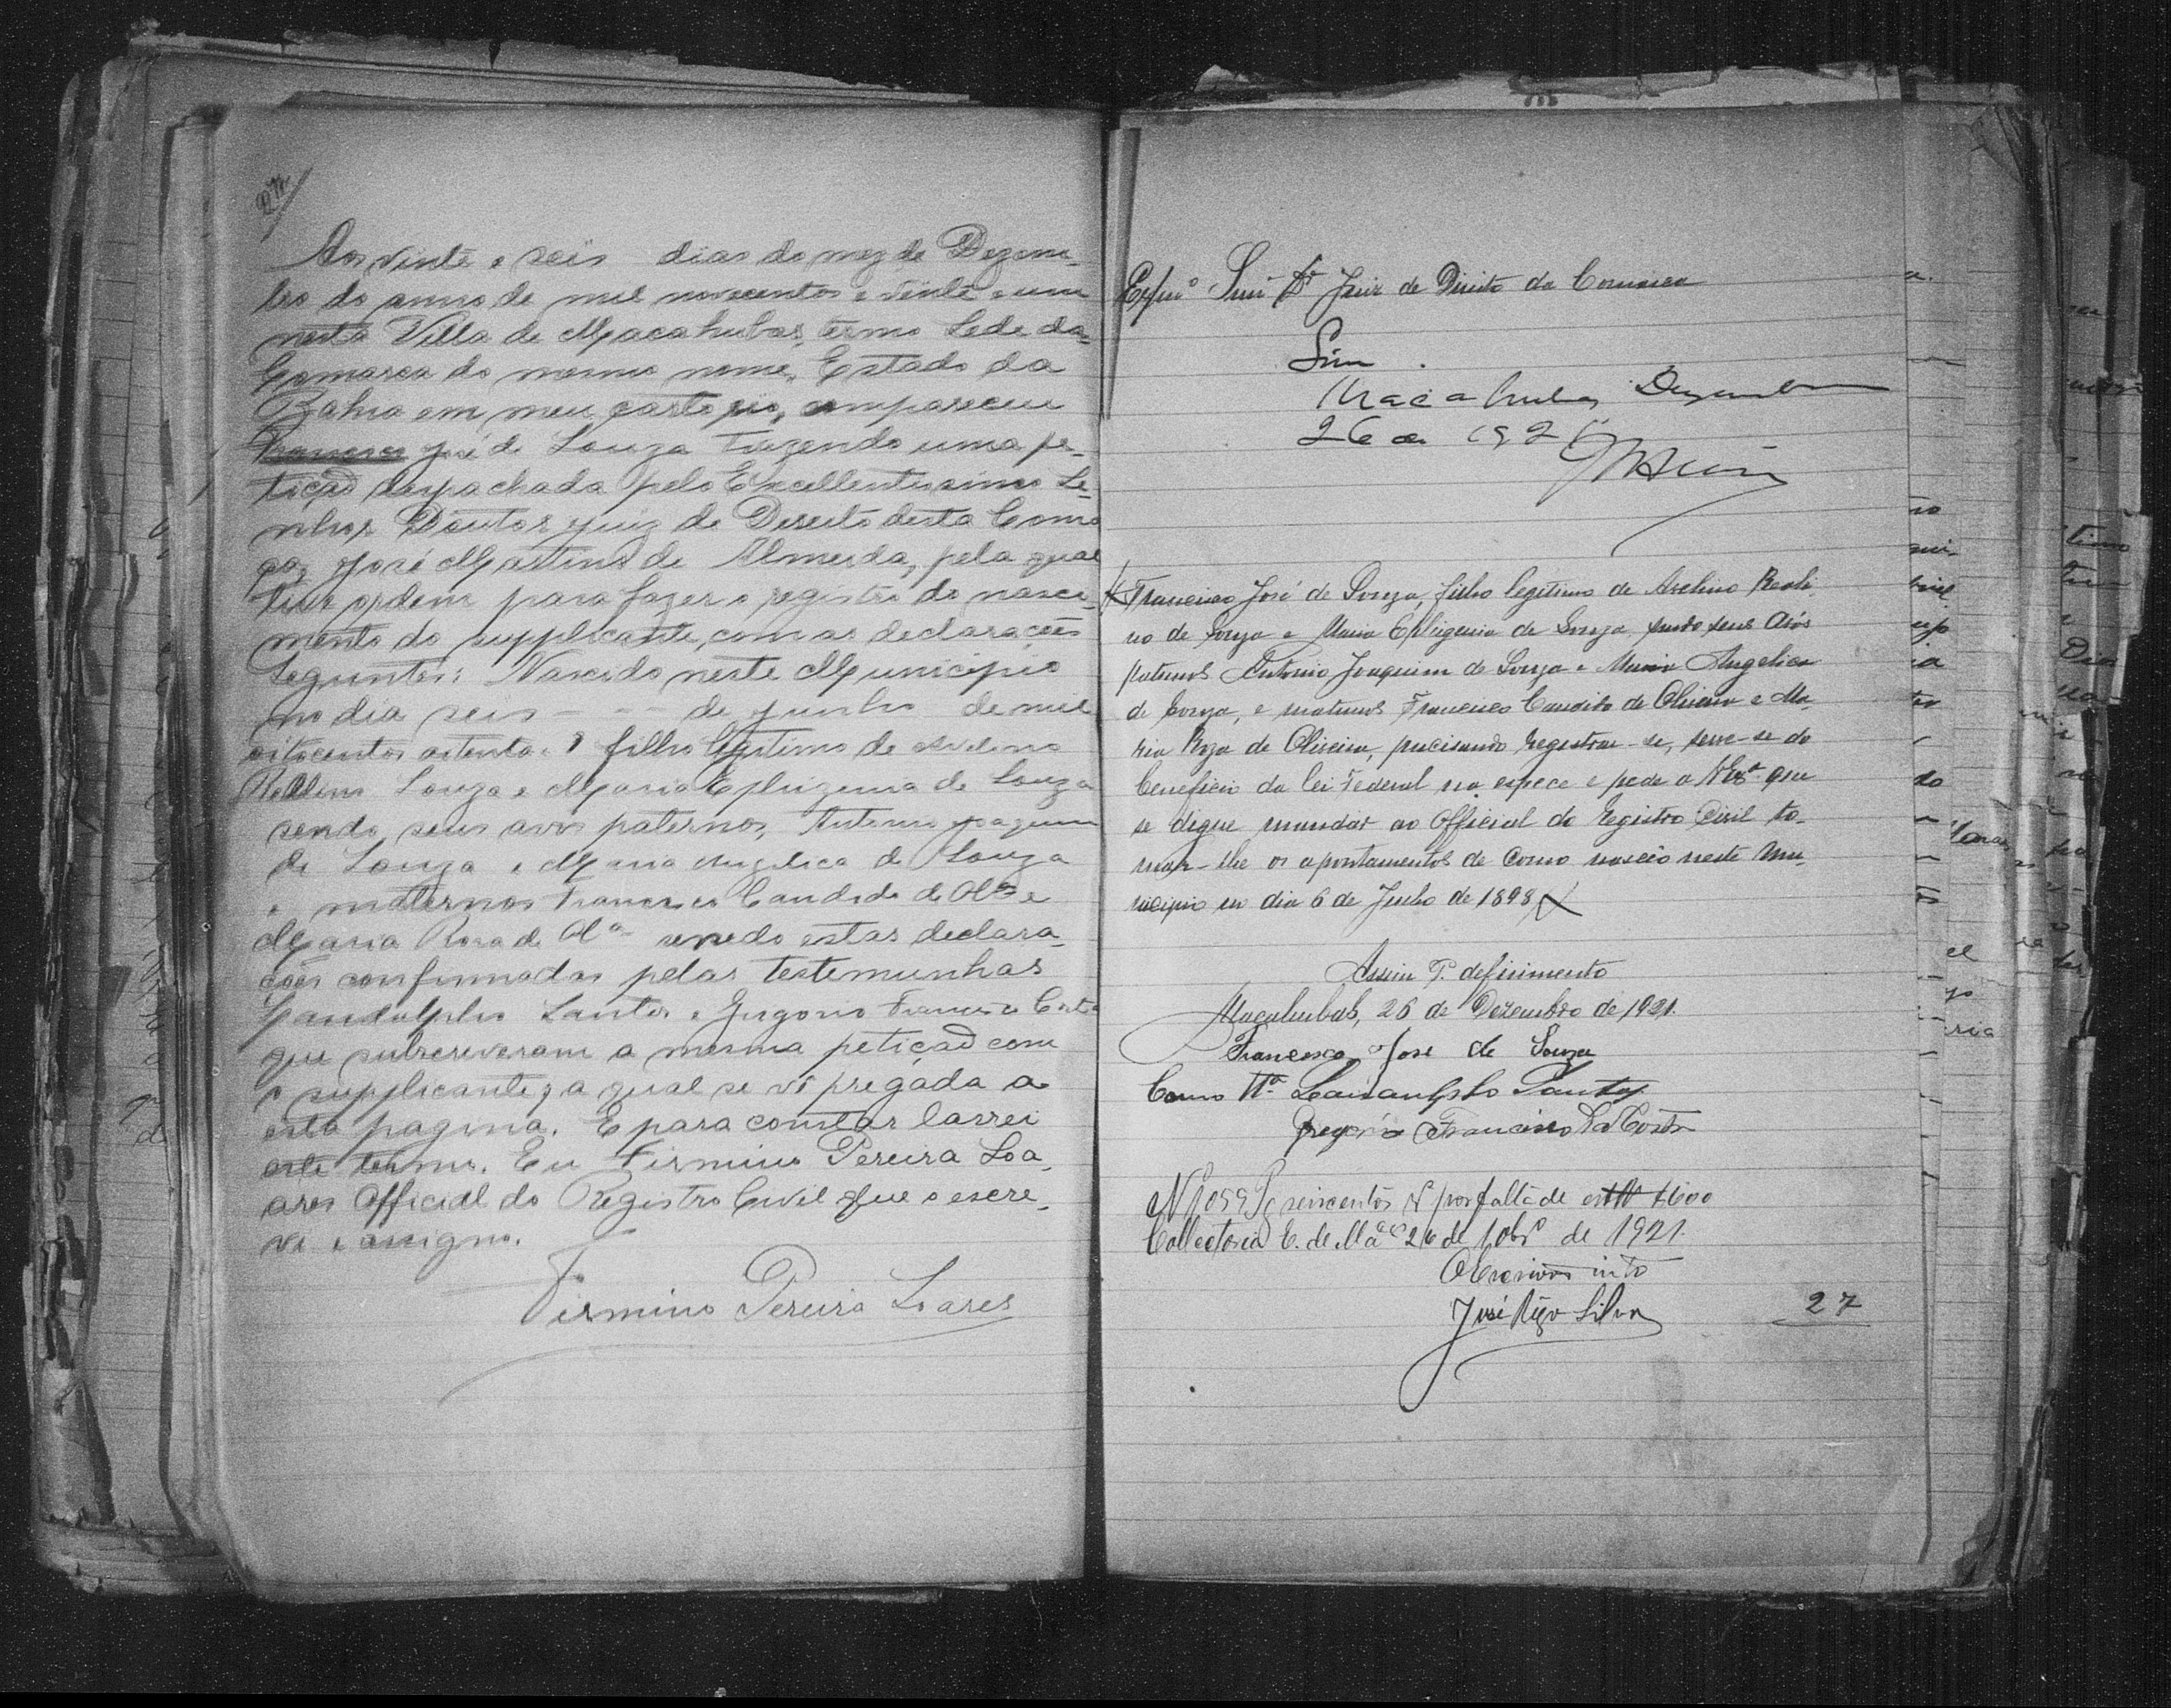 Aos vinte e seis dias do mez de Dezem-
bro do anno de mil novecentos e vinte e um
nesta Villa de Macahubas, termo Sede da
Comarca do mesmo nome, Estado da
Bahia em meu cartorio, compareceu
Francisco José de Souza trazendo uma pe-
tição despachada pelo Excellentissimo Se-
nhor Doutor Juiz de Direito desta Comar
ca, José Martins de Almeida, pela qual
tive ordem para fazer o registro do nasci-
mento do supplicante, com as declarações
seguintes: Nascido neste Municipio
no dia seis - - - de junho de mil
oitocentos oitenta e 8 filho legitimo de Avelino
Souza e Maria Ephigenia de Souza
sendo seus avós paternos, Antonio Joaquim
de Souza e Maria Angelica de Souza
e maternos Francisco Candido de Olª e
Maria Rosa de Olª sendo estas declara-
ções confirmadas pelas testemunhas
Landulpho Santos e Gregorio Francisco Costa
que subscreveram a mesma petição com
o supplicante, a qual se vê pregada a
esta pagina. E para constar lavrei
este termo. Eu Firmino Pereira Soa-
ares Official do Registro Civil que o escre-
vi e assigno.
Firmino Pereira Soares
Exmº Snr Dr Juiz de Direito da Comarca
Sim.
Macahubas Dezembro
26 de 1921
Francisco José de Souza, filho legitimo de Avelino
no de Souza e Maria Ephigenia de Souza sendo seus avós
paternos Antonio Joaquim de Souza e Maria Angelica
de Souza, e maternos Francisco Candido de Oliveira e Ma-
ria Roza de Oliveira, precisando registrar-se, serve-se do
beneficio da lei Federal na especie e pede a que
se digne mandar ao Official do Registro Civil to-
mar-lhe os apontamentos de como nasceo neste Mu-
nicipio no dia 6 de Junho de 1898
Assim P. deferimento
Macahubas, 26 de Dezembro de 1921.
Francisco José de Souza
Como Tª Landulpho Santos
Gregorio Francisco da Costa
N 1059 Pg seiscentos rs por falta de estª $600
Collectoria E. de Mªcas 26 de 10brº de 1921.
O Escrivão intº
José Silva
27